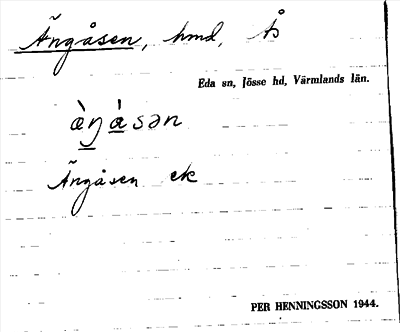 Ängåsen, hmd, Ås
Eda sn, Jösse hd, Värmlands län.
æ̀ŋås̀ən
Ängåsen ek
PER HENNINGSSON 1944.